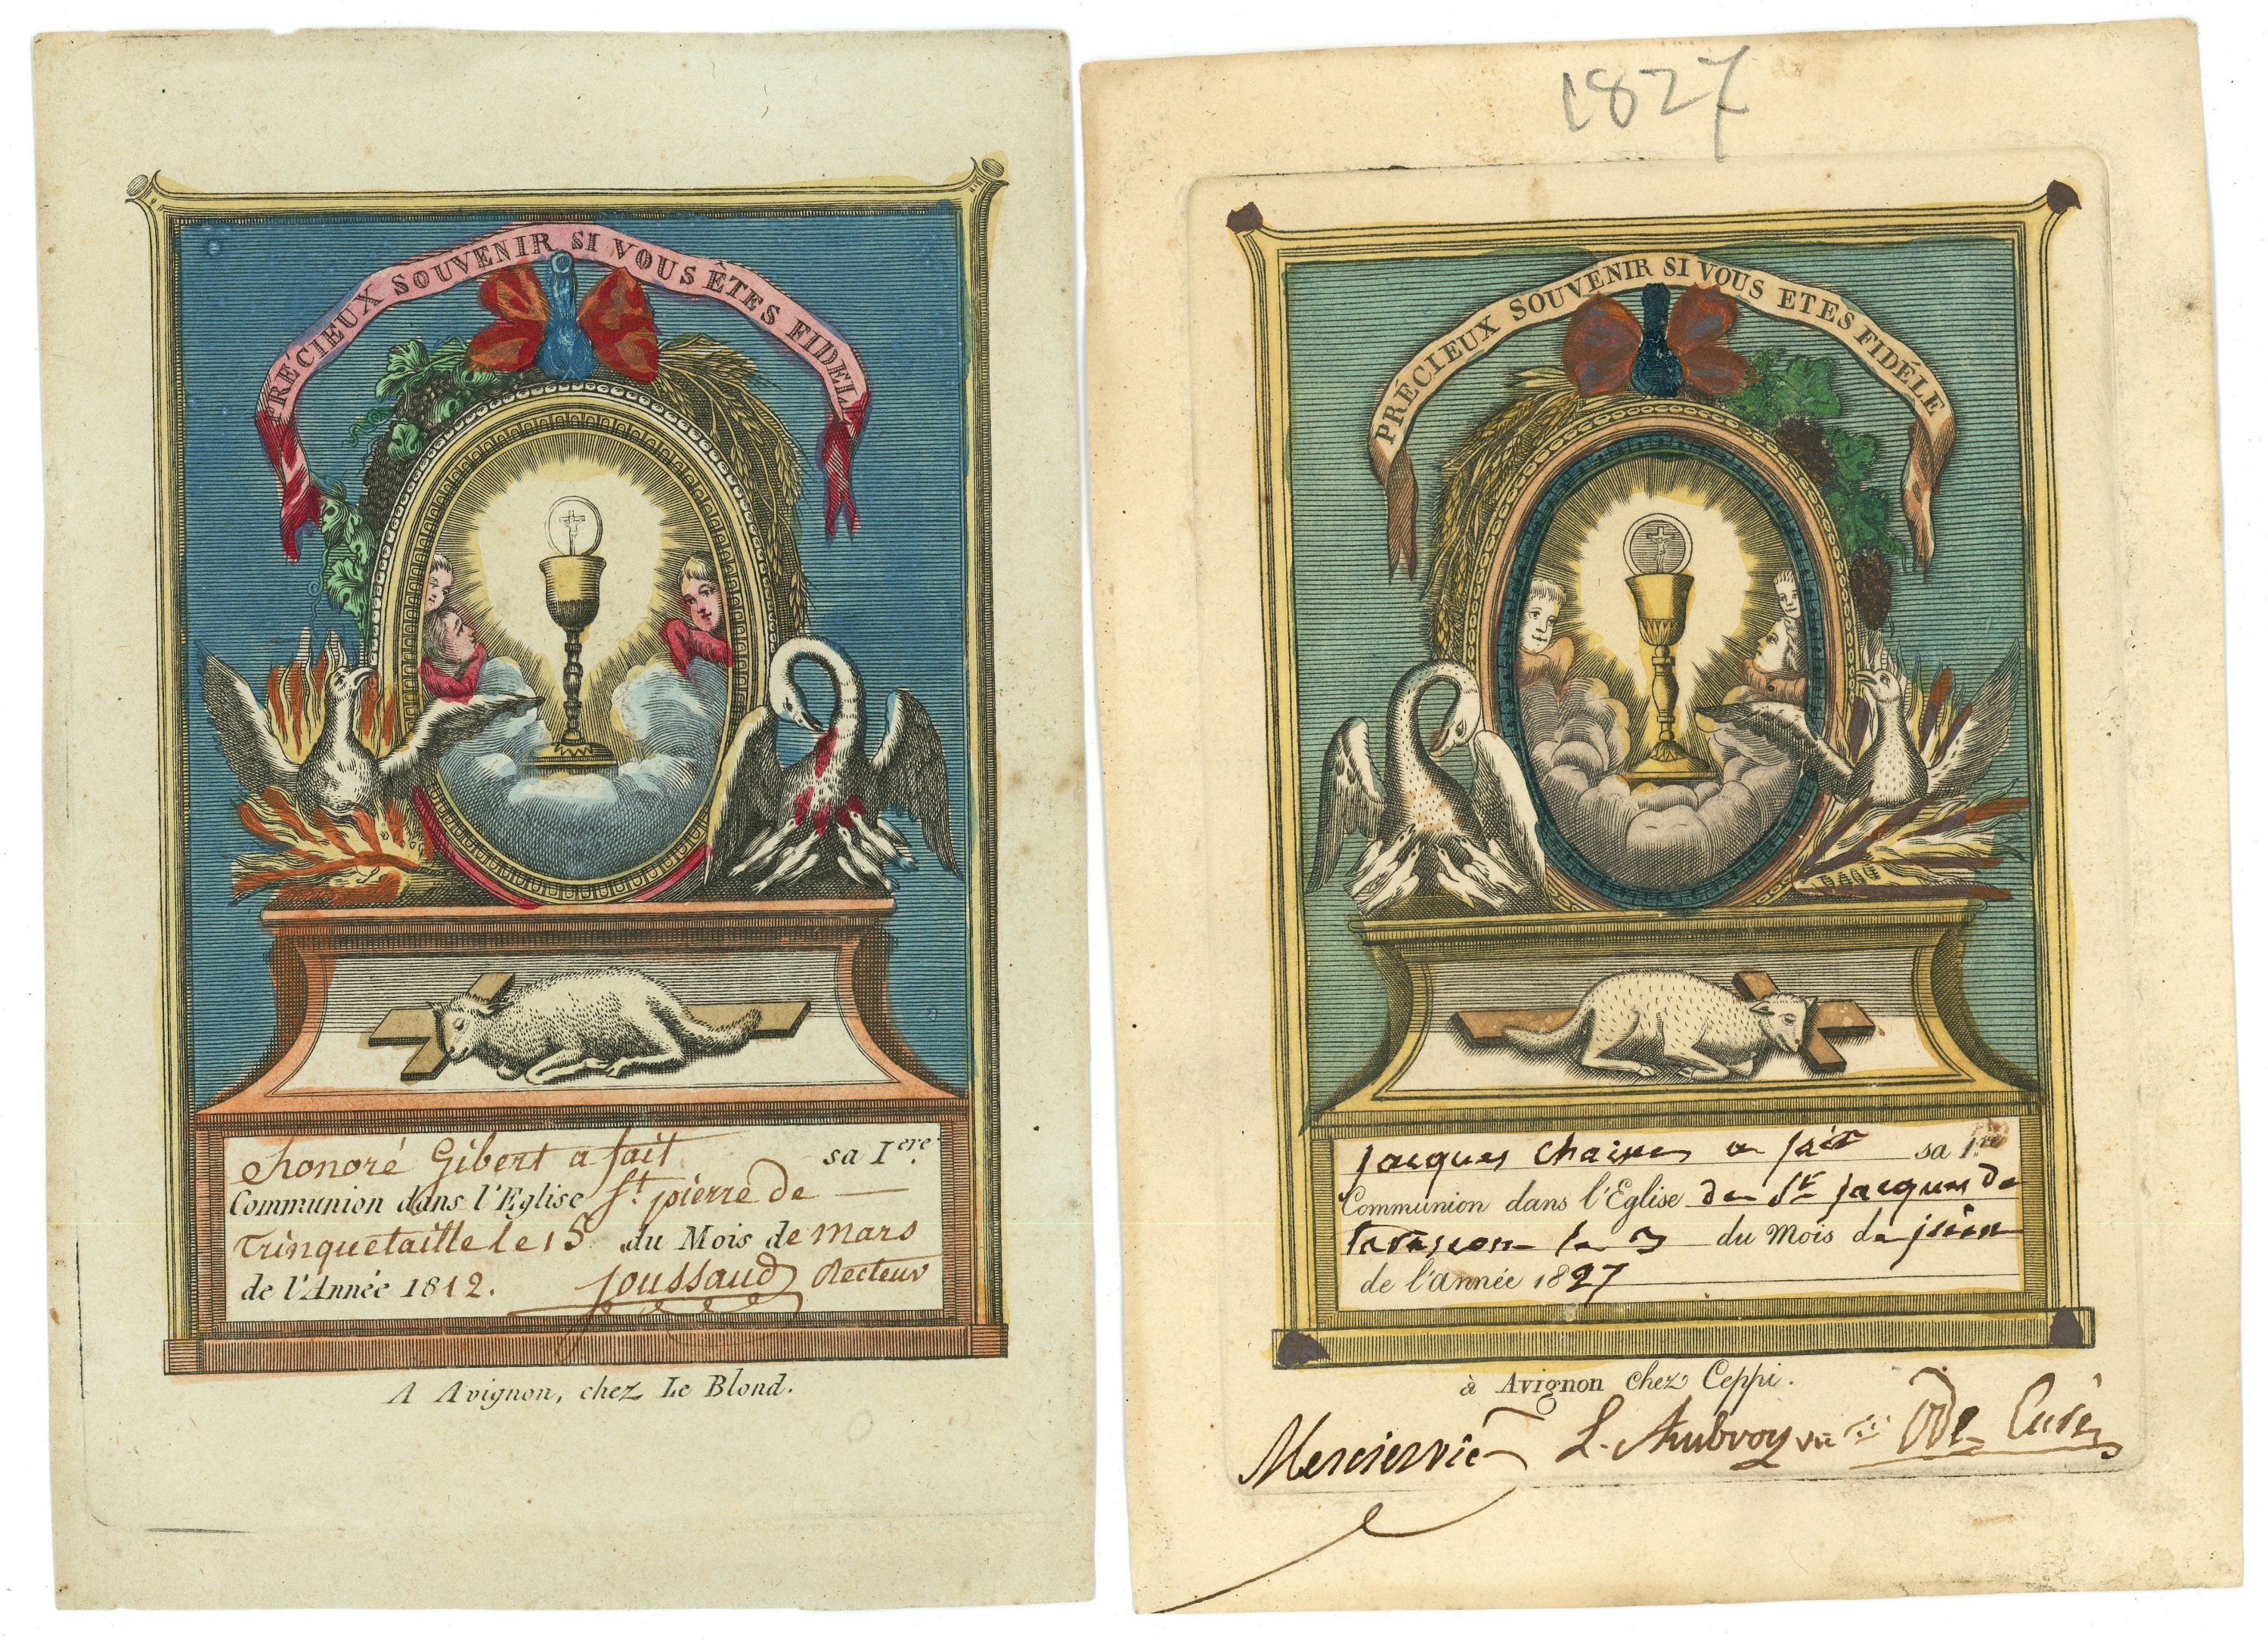 PRÉCIEUX SOUVENIR SI VOUS ÊTES FIDEL
honoré Gibert a fait sa I.ere
Communion dans l'Eglise St pierre de
Trinquetaille le 15 du Mois de mars
de l'Année 1812. Joussaud Recteur
A Avignon, chez Le Blond.
1827
PRÉCIEUX SOUVENIR SI VOUS ETES FIDÉLE
jacques a fait sa 1.re
Communion dans l'Eglise de St jacques de
tarascon le 3 du Mois de juin
de l'année 1827
à Avignon Chez Ceppi.
Mercier vic L. Aubroy Curé